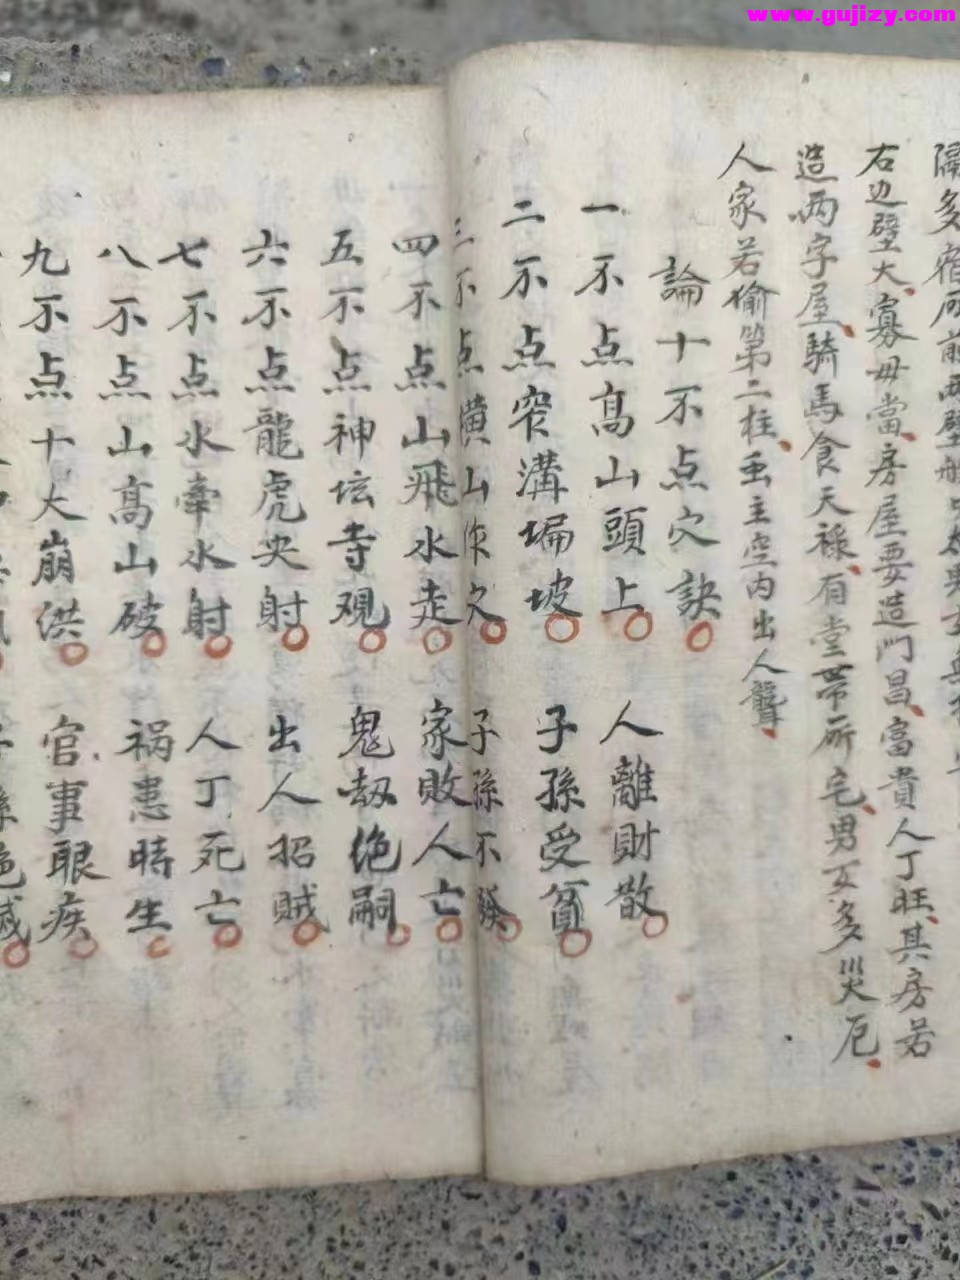 www.gujizy.com
右边壁大寡母當房屋要造門昌富貴人丁旺其房若
造两字屋騎馬食天祿有堂帯所宅男女多災厄
人家若偷第二柱虫主空内出人聾
論十不点穴訣
一不点髙山頭上 人離財散
二不点窄溝塥坡 子孫受貧
三不点横山作穴 子孫不發
四不点山飛水走 家敗人亡
五不点神坛寺观 鬼劫绝嗣
六不点龍虎尖射 出人招賊
七不点水牽水射 人丁死亡
八不点山髙山破 祸患時生
九不点十大崩洪 官事眼疾